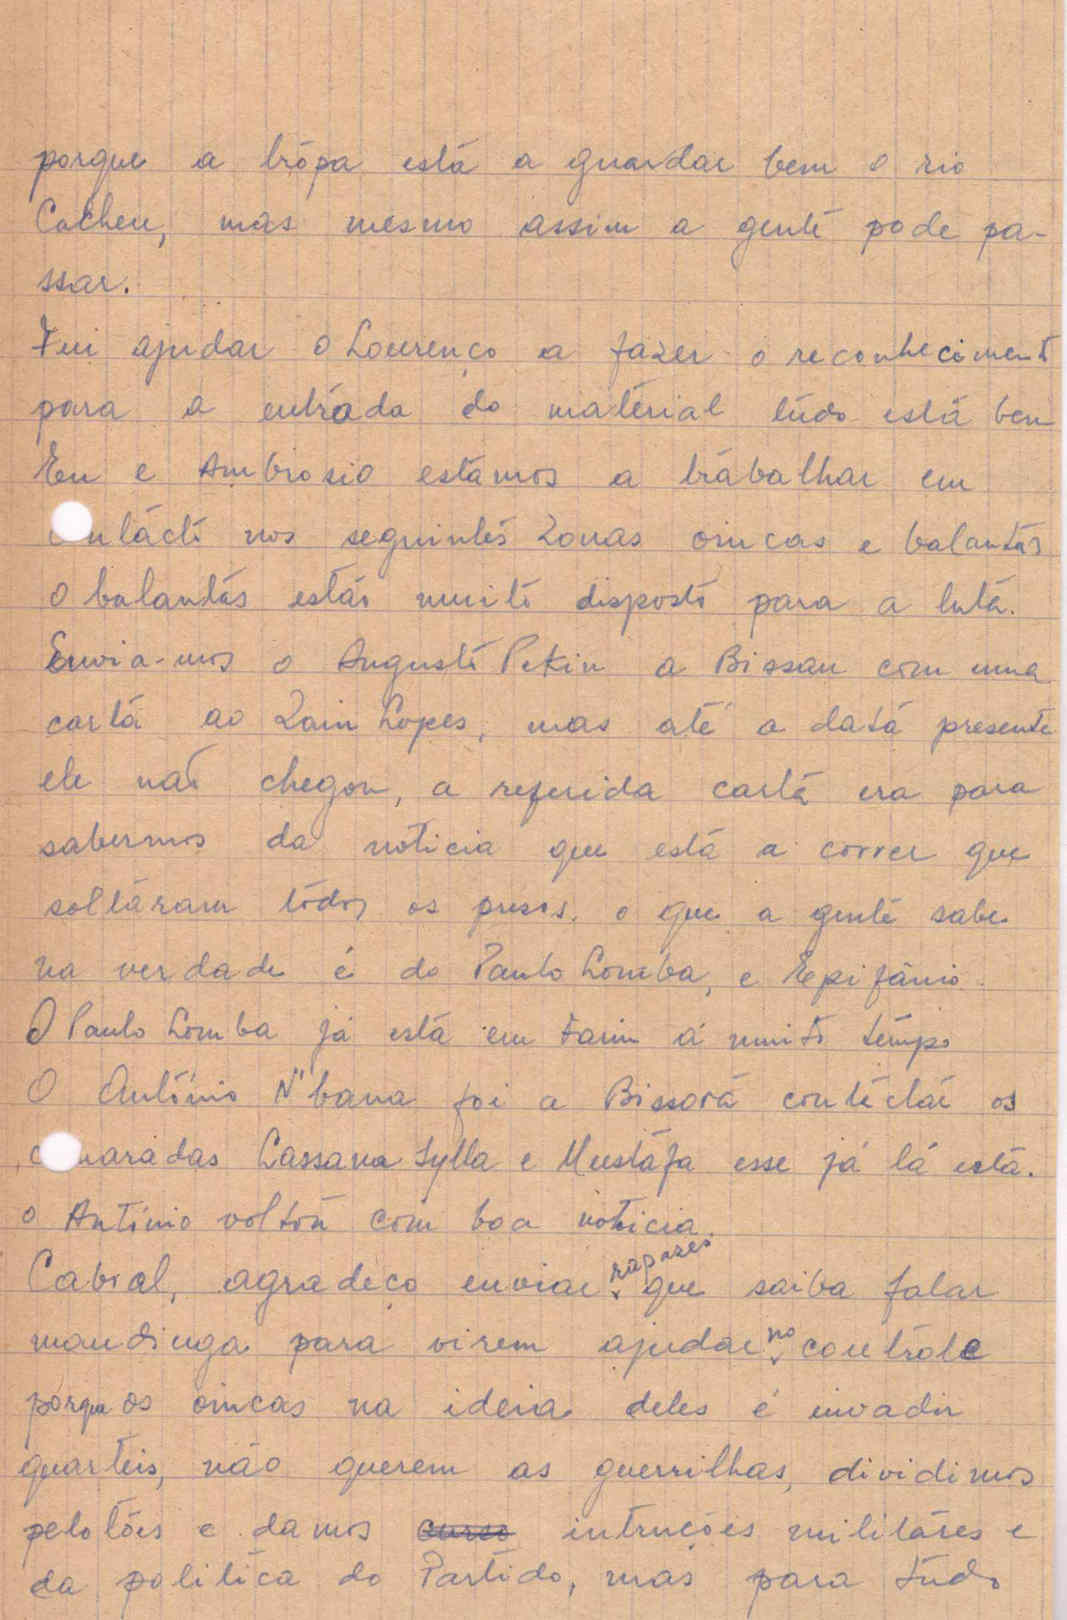 porque a trópa está a guardar bem o rio
Cacheu, mas mesmo assim a gente pode pa-
ssar.
Fui ajudar o Lourenço a fazer o reconheciment
para a entrada do material túdo está bem
Eu e Ambrosio estámos a trábalhar em
nos seguintes zonas oincas e balantás
O balantás estão muito disposto para a luta.
Envia-mos o Augusto Pekin a Bissau com uma
cartá ao Zain Lopes, mas até a datá presente
ele não chegou, a referida cartá era para
sabermos da noticia que está a correr que
soltáram tódos os presos. o que a gente sabe
na verdade é do Paulo Lomba, e Epifânio.
O Paulo Lomba já está em Farim á muito tempo
O António N'bana foi a Bissorá contéctár os
camarádas Lassana Sylla e Mustáfa esse já lá está.
o António voltou com boa noticia
Cabral, agradeço enviar rapazes que saiba falar
mandinga para virem ajudar no contrôle
porque os oincas na ideia deles é invadir
quarteis, não querem as guerrilhas, dividimos
pelotões e damos curso intruções militáres e
da politica do Partido, mas para túdo